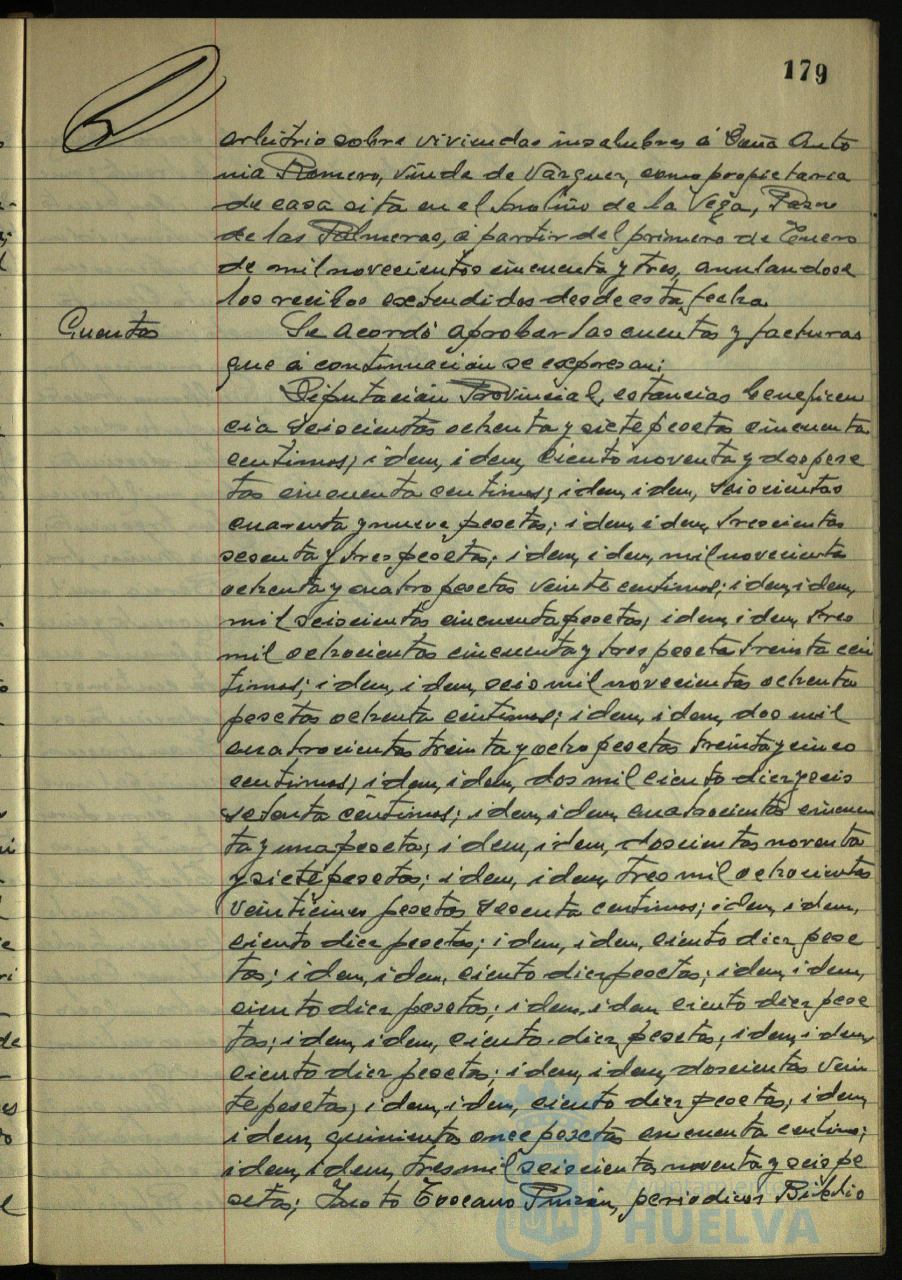 179
arbitrio sobre viviendas insalubres á Doña Anto
nia Romero, viuda de Vázquez, como propietaria
de casa sita en el Molino de la Vega, Paseo
de las Palmeras, á partir del primero de Enero
de mil novecientos cincuenta y tres, anulandose
los recibos extendidos desde esta fecha.
Cuentas
Se acordó aprobar las cuentas y facturas
que á continuación se expresan:
Diputación Provincial, estancias beneficen
cia seiscientas ochenta y siete pesetas cincuenta
centimos; idem, idem, ciento noventa y dos pese
tas cincuenta centimos; idem, idem, seiscientas
cuarenta y nueve pesetas; idem, idem, trescientas
sesenta y tres pesetas; idem, idem, mil novecientas
ochenta y cuatro pesetas veinte centimos; idem, idem,
mil seiscientas cincuenta pesetas; idem, idem, tres
mil ochocientas cincuenta y tres peseta treinta cen
timos; idem, idem, seis mil novecientas ochenta
pesetas ochenta centimos; idem, idem, dos mil
cuatrocientas treinta y ocho pesetas treinta y cinco
centimos; idem, idem, dos mil ciento diez y seis
setenta céntimos; idem, idem, cuatrocientas cincuen
ta y una peseta; idem, idem, doscientas noventa
y siete pesetas; idem, idem, tres mil ochocientas
veinticinco pesetas sesenta centimos; idem, idem,
ciento diez pesetas; idem, idem, ciento diez pese
tas; idem, idem, ciento diez pesetas; idem, idem,
ciento diez pesetas; idem, idem ciento diez pese
tas; idem, idem, ciento diez pesetas; idem, idem,
ciento diez pesetas; idem, idem, doscientas vein
te pesetas; idem, idem, ciento diez pesetas; idem,
idem, quinientas once pesetas cincuenta centimos;
idem, idem, tres mil seiscientas noventa y seis pe
setas; Justo Toscano Pinzón, periodicos Biblio
Ayuntamiento
HUELVA